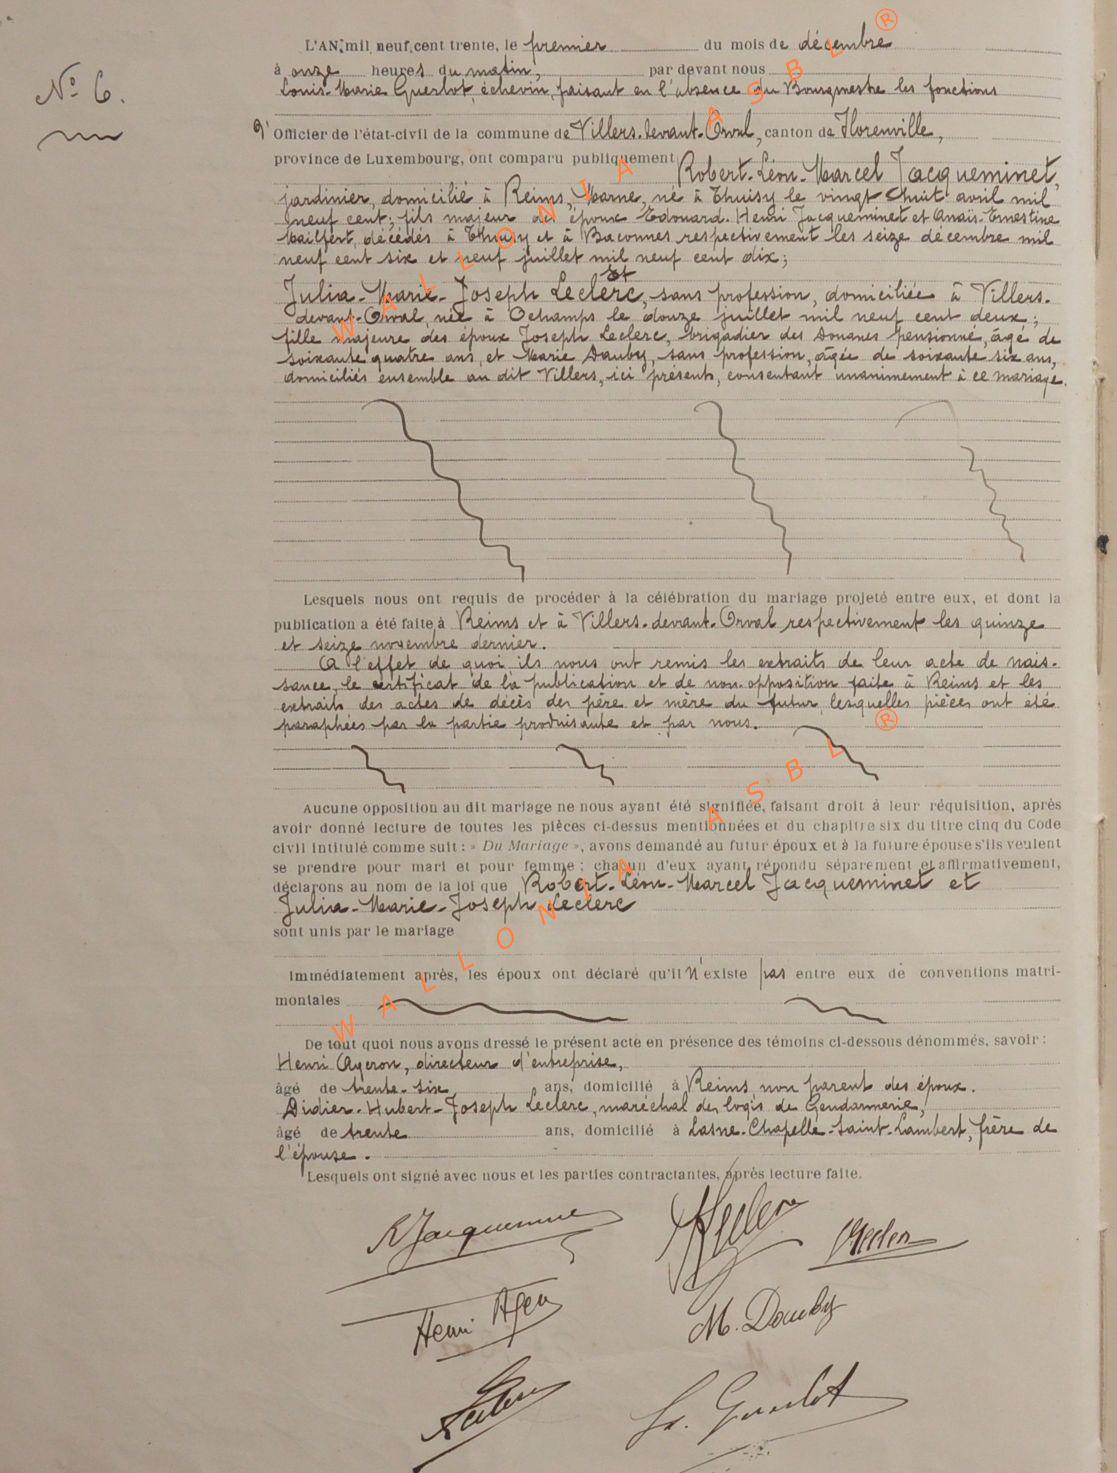 No 6.
L'AN mil neuf cent trente, le premier du mois de décembre
à onze heures du matin, par devant nous
Louis-Marie Guerlot, échevin, faisant en l'absence du Bourgmestre les fonctions
d'Officier de l'état-civil de la commune de Villers-devant-Orval, canton de Florenville,
province de Luxembourg, ont comparu publiquement Robert-Léon-Marcel Jacqueminet,
jardinier, domicilié à Reims, Marne, né à Thuisy le vingt huit avril mil
neuf cent; fils majeur des époux Edouard-Henri Jacqueminet et Anaïs-Ernestine
Mailfert, décédés à Thuisy et à Baconnes respectivement les seize décembre mil
neuf cent six et neuf juillet mil neuf cent dix;
et
Julia-Marie-Joseph Leclerc, sans profession, domiciliée à Villers-
devant-Orval, née à Ochamps le douze juillet mil neuf cent deux;
fille majeure des époux Joseph Leclerc, brigadier des Douanes pensionné, âgé de
soixante quatre ans, et Marie Dauby, sans profession, âgée de soixante six ans,
domiciliés ensemble au dit Villers, ici présents, consentant unanimement à ce mariage.
Lesquels nous ont requis de procéder à la célébration du mariage projeté entre eux, et dont la
publication a été faite à Reims et à Villers-devant-Orval respectivement les quinze
et seize novembre dernier.
A l'effet de quoi ils nous ont remis les extraits de leur acte de nais-
sance, le certificat de la publication et de non-opposition faite à Reims et les
extraits des actes de décès des père et mère du futur, lesquelles pièces ont été
paraphées par la partie produisante et par nous.
Aucune opposition au dit mariage ne nous ayant été signifiée, faisant droit à leur réquisition, après
avoir donné lecture de toutes les pièces ci-dessus mentionnées et du chapitre six du titre cinq du Code
civil intitulé comme suit : « Du Mariage », avons demandé au futur époux et à la future épouse s'ils veulent
se prendre pour mari et pour femme ; chacun d'eux ayant répondu séparement et affirmativement,
déclarons au nom de la loi que Robert-Léon-Marcel Jacqueminet et
Julia-Marie-Joseph Leclerc
sont unis par le mariage
Immédiatement après, les époux ont déclaré qu'il n'existe pas entre eux de conventions matri-
moniales
De tout quoi nous avons dressé le présent acte en présence des témoins ci-dessous dénommés, savoir :
Henri Ageron, directeur d'entreprise,
âgé de trente-six ans, domicilié à Reims non parent des époux.
Didier-Hubert-Joseph Leclerc, maréchal des logis de Gendarmerie,
âgé de trente ans, domicilié à Lasne-Chapelle-Saint-Lambert, frère de
l'épouse.
Lesquels ont signé avec nous et les parties contractantes, après lecture faite.
R Jacqueminet
JLeclerc
Leclerc
Henri Ageron
M. Dauby
Leclerc
L. Guerlot
WALLONIA ASBL ®
WALLONIA ASBL ®